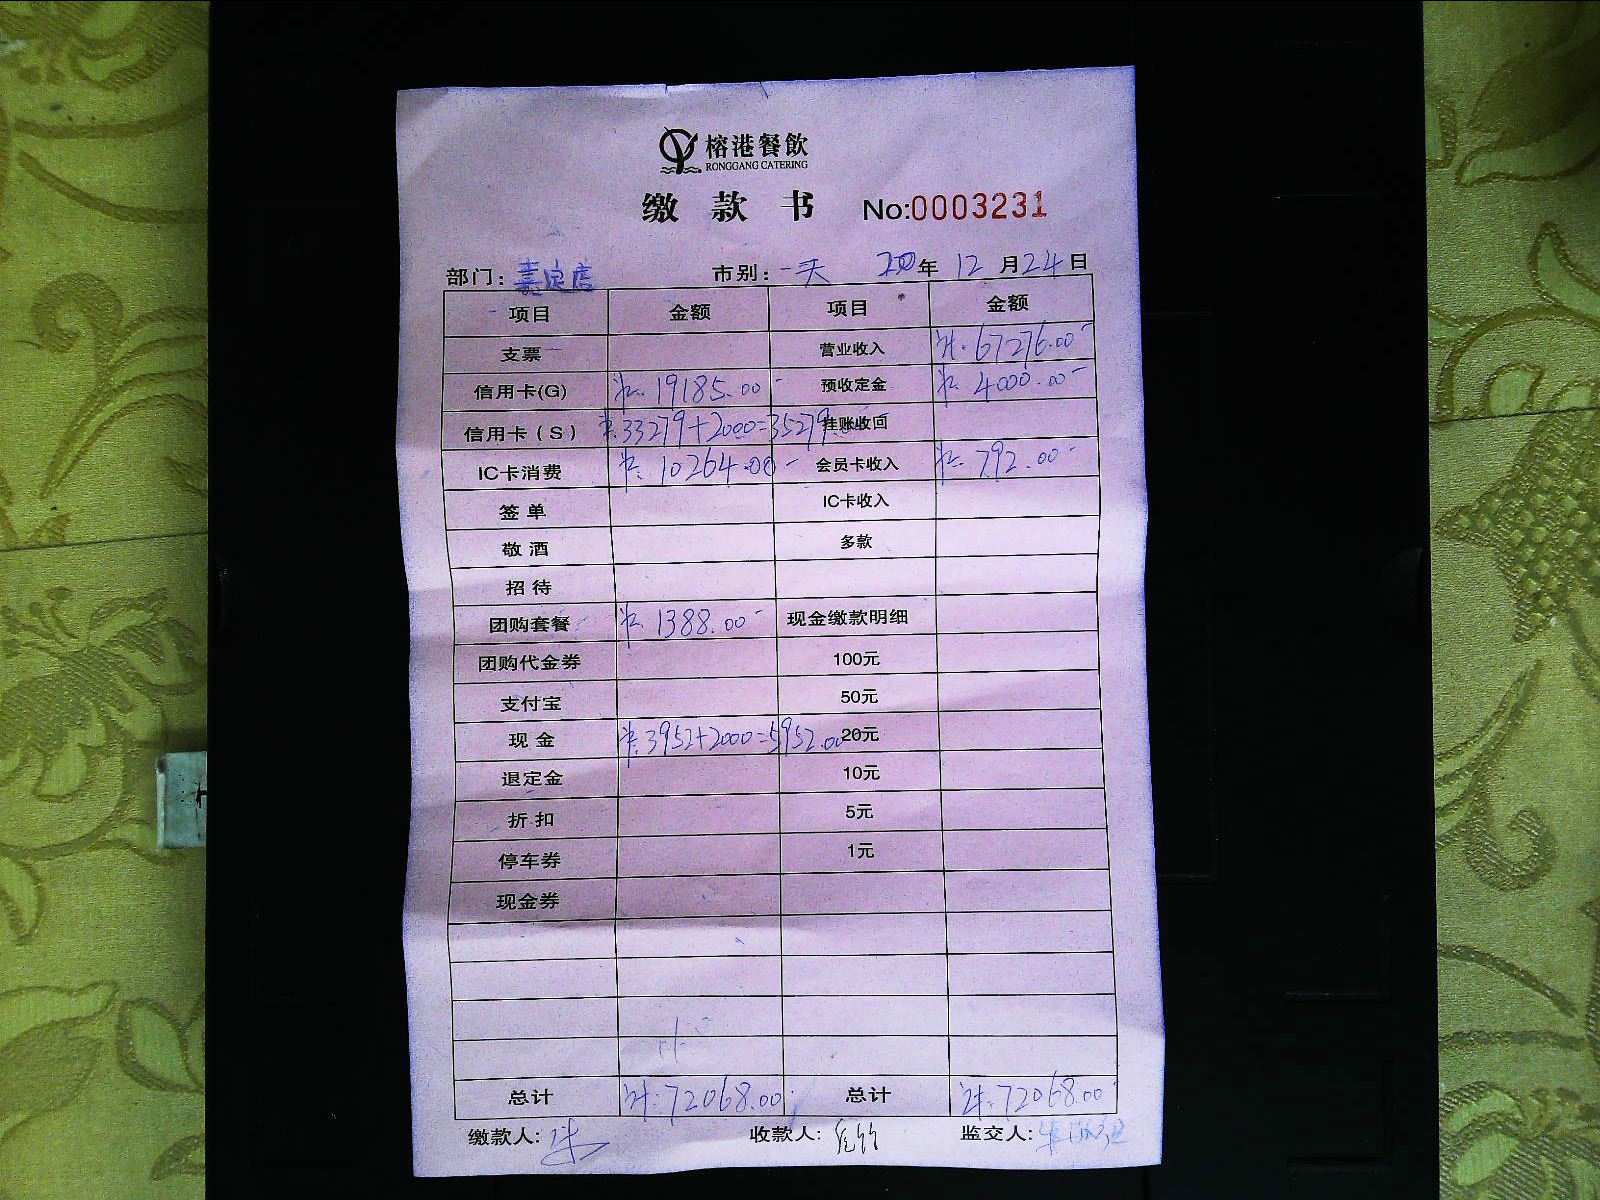 榕港餐飲
RONGGANG CATERING
缴 款 书 No:0003231
部门: 嘉定店 市别: 一天 年 12 月 24 日
项目 金额 项目 金额
支票 营业收入 计: 67276.00
信用卡(G) 19185.00 预收定金 4000.00
信用卡(S) 33279+2000=35279.00 挂账收回
IC卡消费 10264.00 会员卡收入 792.00
签 单 IC卡收入
敬 酒 多款
招 待
团购套餐 1388.00 现金缴款明细
团购代金券 100元
支付宝 50元
现 金 3952+2000=5952.00 20元
退定金 10元
折 扣 5元
停车券 1元
现金券
总计 计: 72068.00 总计 计: 72068.00
缴款人: 收款人: 监交人: